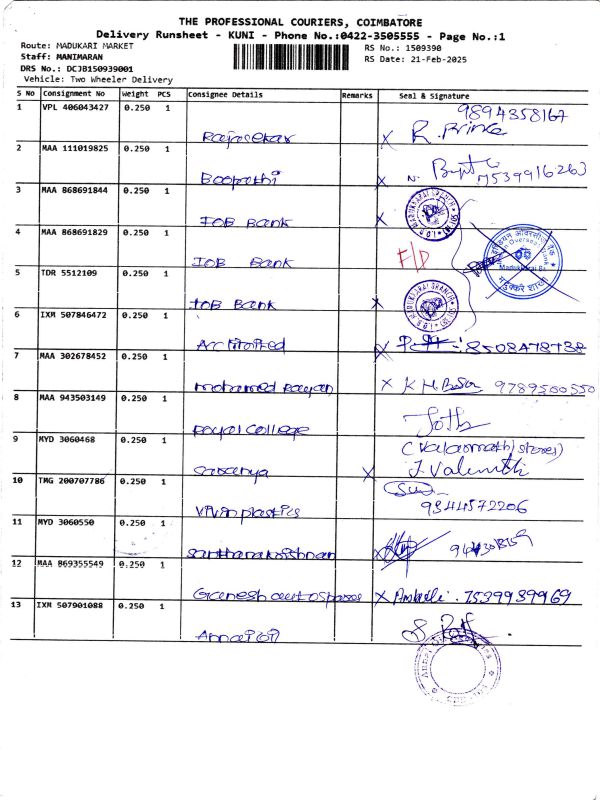 THE PROFESSIONAL COURIERS, COIMBATORE
Delivery Runsheet - KUNI - Phone No.:0422-3505555 - Page No.:1
Route: MADUKARI MARKET
RS No.: 1509390
Staff: MANIMARAN
RS Date: 21-Feb-2025
DRS No.: DCJB150939001
Vehicle: Two Wheeler Delivery
S No Consignment No Weight PCS Consignee Details Remarks Seal & Signature
1 VPL 406043427 0.250 1 9894358167
Rajasekar X R. Prince
2 MAA 111019825 0.250 1
Boopathi X 7539916263
3 MAA 868691844 0.250 1
IOB Bank X
4 MAA 868691829 0.250 1
IOB Bank F/D
5 TDR 5512109 0.250 1
IOB Bank X
6 IXM 507846472 0.250 1
X 8508478738
7 MAA 302678452 0.250 1
Mohamed Rayan X 9789500550
8 MAA 943503149 0.250 1
Royal College
9 MYD 3060468 0.250 1
Saranya X
10 TMG 200707786 0.250 1
Vivin plastics 9344572206
11 MYD 3060550 0.250 1
Santhanakrishnan X
12 MAA 869355549 0.250 1
Ganesh auto spares X 7539939969
13 IXM 507901088 0.250 1
Annai oil